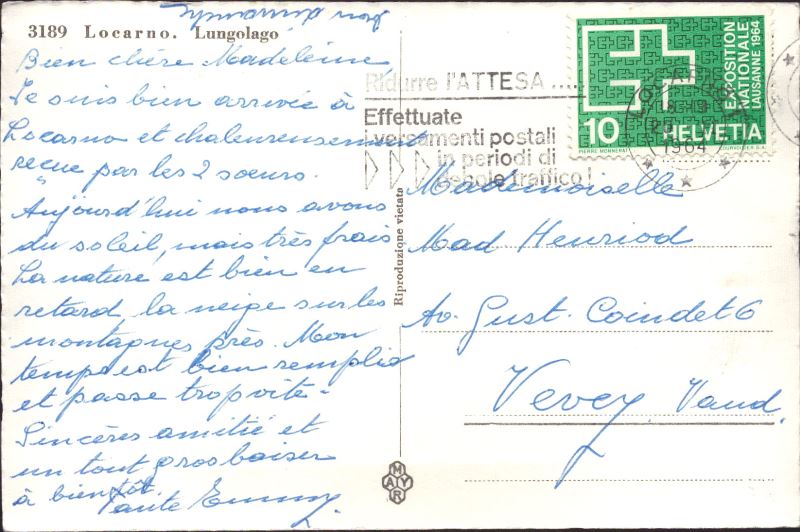 3189 Locarno. Lungolago
Bien chère Madeleine
Je suis bien arrivée à
Locarno et chaleureusement
reçue par les 2 sœurs.
Aujourd'hui nous avons
du soleil, mais très frais
La nature est bien en
retard, la neige sur les
montagnes près. Mon
temps est bien remplie
et passe trop vite.
Sincères amitié et
un tout gros baiser
à bientôt.
Tante Emmy
Riproduzione vietata
MAYR
Ridurre l'ATTESA .....
Effettuate
i versamenti postali
in periodi di
debole traffico!
EXPOSITION
NATIONALE
LAUSANNE 1964
10 HELVETIA
PIERRE MONNERAT
COURVOISIER S.A.
1964
Mademoiselle
Mad Henriod
Av. Gust. Coindet 6
Vevey. Vaud.